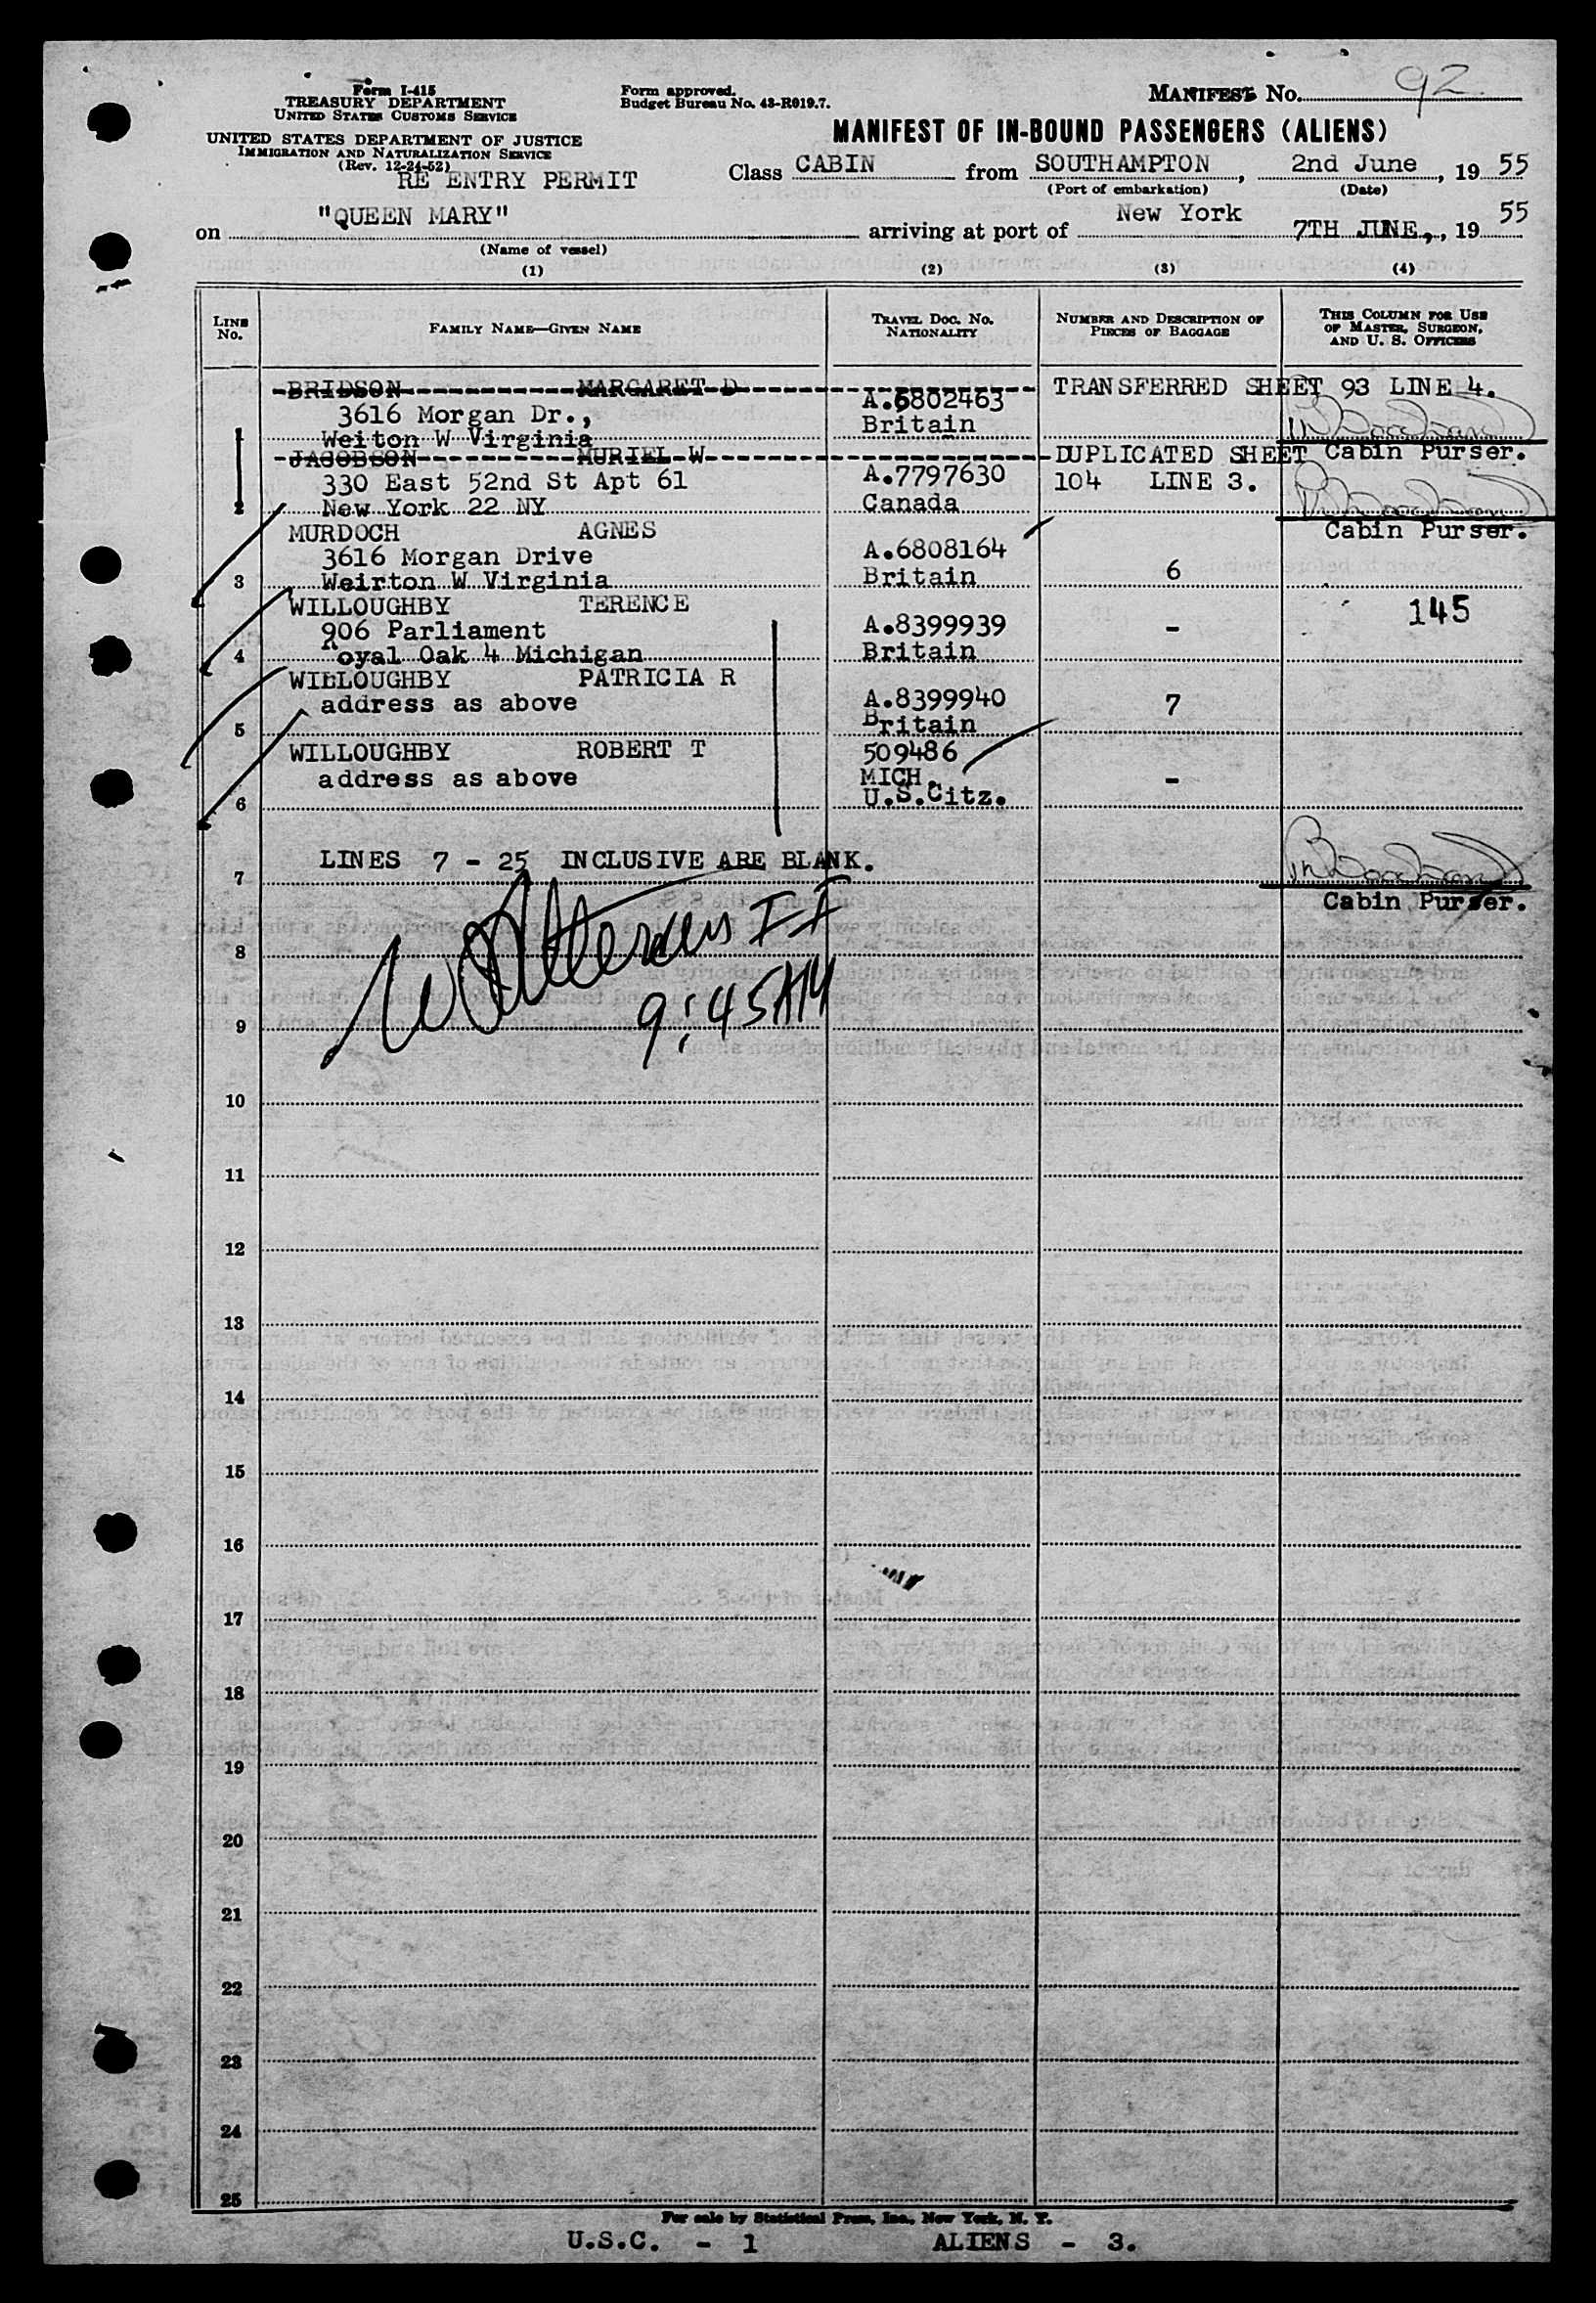 Form I-415
TREASURY DEPARTMENT
UNITED STATES CUSTOMS SERVICE
UNITED STATES DEPARTMENT OF JUSTICE
IMMIGRATION AND NATURALIZATION SERVICE
(Rev. 12-24-52)
RE ENTRY PERMIT
Form approved.
Budget Bureau No. 43-R019.7.
MANIFEST No. 92
MANIFEST OF IN-BOUND PASSENGERS (ALIENS)
Class CABIN from SOUTHAMPTON, 2nd June, 19 55
(Port of embarkation) (Date)
on "QUEEN MARY" arriving at port of New York 7TH JUNE, 19 55
(Name of vessel)
(1) (2) (3) (4)
LINE No. FAMILY NAME—GIVEN NAME TRAVEL DOC. No. NATIONALITY NUMBER AND DESCRIPTION OF PIECES OF BAGGAGE THIS COLUMN FOR USE OF MASTER, SURGEON, AND U. S. OFFICERS
BRIDSON MARGARET D TRANSFERRED SHEET 93 LINE 4.
3616 Morgan Dr., A.6802463
1 Weiton W Virginia Britain
JACOBSON MURIEL W DUPLICATED SHEET Cabin Purser.
330 East 52nd St Apt 61 A.7797630 104 LINE 3.
2 New York 22 NY Canada
MURDOCH AGNES Cabin Purser.
3616 Morgan Drive A.6808164
3 Weirton W Virginia Britain 6
WILLOUGHBY TERENCE 145
906 Parliament A.8399939 -
4 Royal Oak 4 Michigan Britain
WILLOUGHBY PATRICIA R
address as above A.8399940 7
5 Britain
WILLOUGHBY ROBERT T 509486
address as above MICH. -
6 U.S.Citz.
LINES 7 - 25 INCLUSIVE ARE BLANK.
7
Cabin Purser.
8
9:45AM
9
10
11
12
13
14
15
16
17
18
19
20
21
22
23
24
25
For sale by Statistical Press, Inc., New York, N. Y.
U.S.C. - 1 ALIENS - 3.